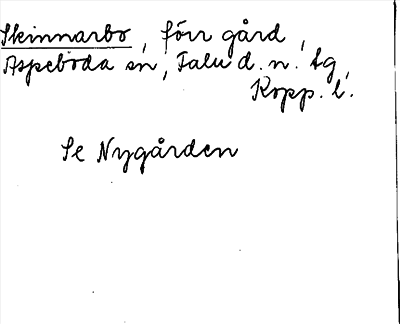 Skinnarbo, förr gård,
Aspeboda sn, Falu d. n. tg,
Kopp. l.
Se Nygården